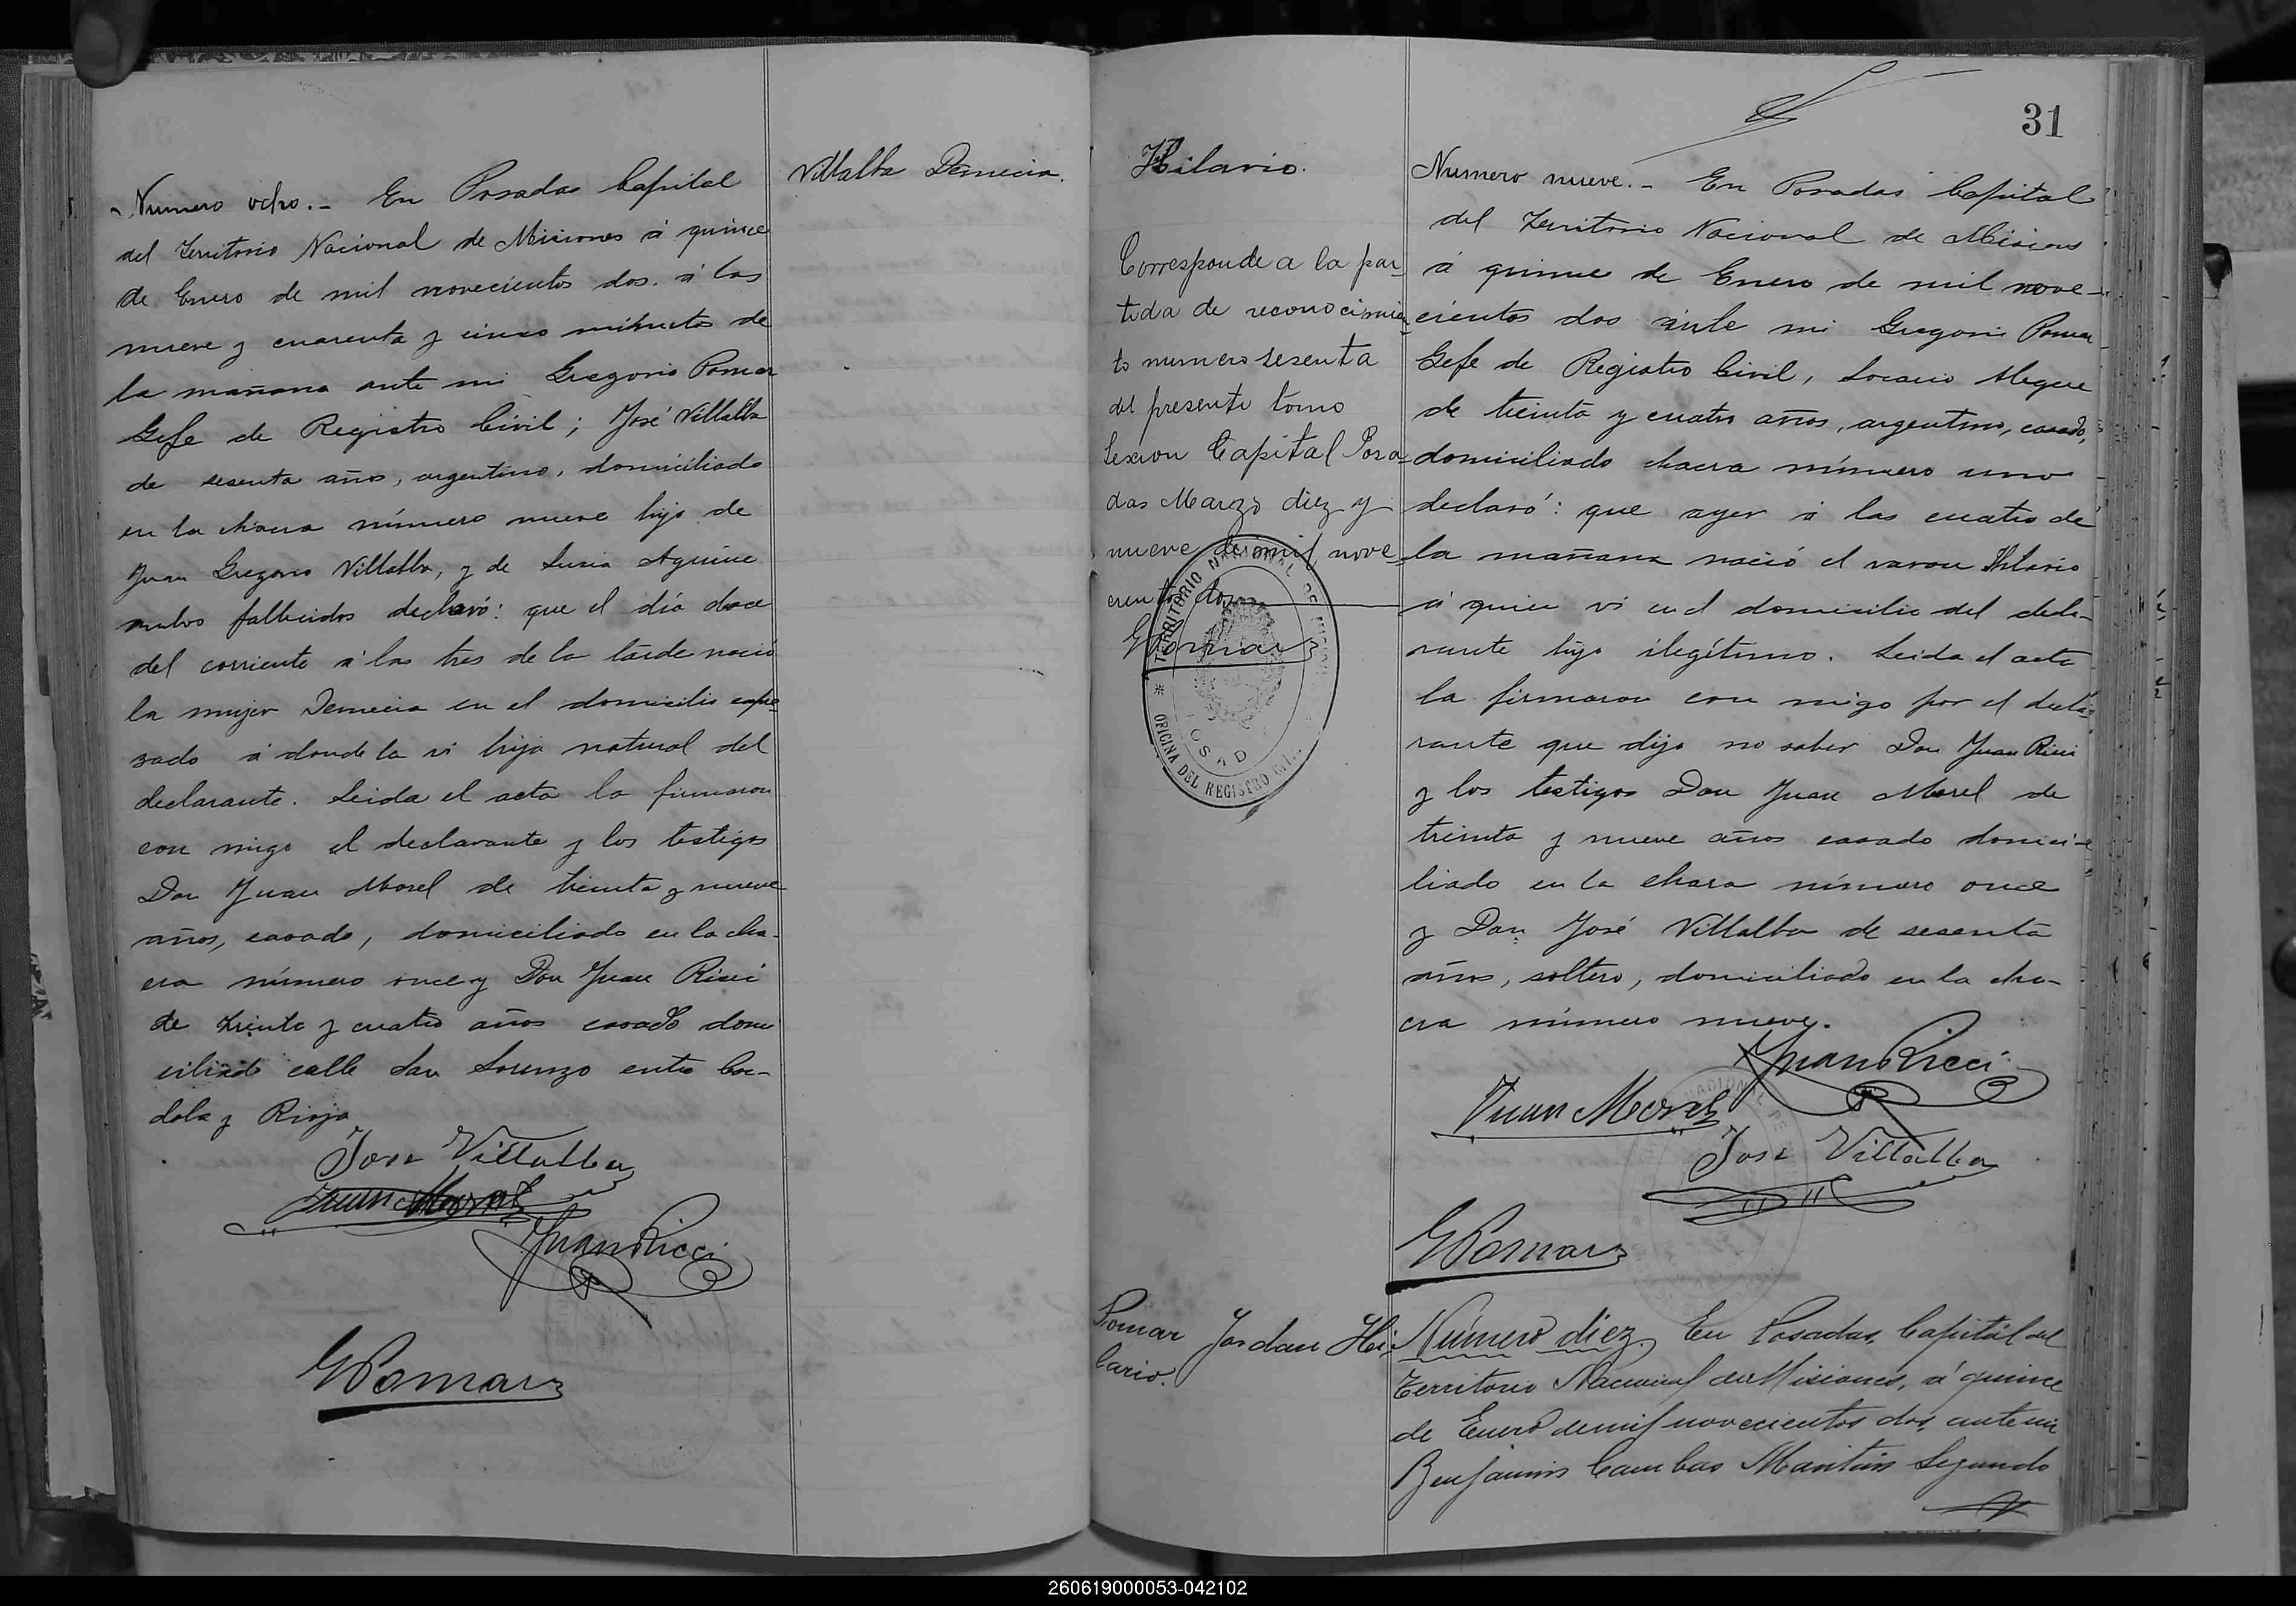 Numero ocho.- En Posadas Capital
del Territorio Nacional de Misiones á quince
de Enero de mil novecientos dos. á las
nueve y cuarenta y cinco minutos de
la mañana ante mi Gregorio Pomar
Gefe de Registro Civil; José Villalba
de sesenta años, argentino, domiciliado
en la chacra número nueve hijo de
Juan Gregorio Villalba, y de Lucia Aguirre
ambos fallecidos declaró: que el día doce
del corriente á las tres de la tarde nació
la mujer Demecia en el domicilio expre-
sado á donde la vi hija natural del
declarante. Leida el acta la firmaron
con migo el declarante y los testigos
Don Juan Morel de treinta y nueve
años, casado, domiciliado en la cha-
cra número once y Don Juan Ricci
de treinta y cuatro años casado domi
ciliado calle San Lorenzo entre Cor-
doba y Rioja
Jose Villalba
Juan Morel
Juan Ricci
GPomar
Villalba Demecia.
31
Hilario.
Corresponde a la par-
tida de reconocimien-
to numero sesenta
del presente tomo
Sexion Capital Posa-
das Marzo diez y
nueve de mil nove-
cientos dos
GPomar
TERRITORIO NACIONAL DE MISIONES
OFICINA DEL REGISTRO CIVIL
POSADAS
Numero nueve.- En Posadas Capital
del Territorio Nacional de Misiones
á quince de Enero de mil nove-
cientos dos ante mi Gregorio Pomar
Gefe de Registro Civil, Alegre
de treinta y cuatro años, argentino, casado,
domiciliado chacra número uno
declaró: que ayer á las cuatro de
la mañana nació el varon Hilario
á quien vi en el domicilio del decla-
rante hijo ilegítimo. Leida el acta
la firmaron con migo por el decla-
rante que dijo no saber Don Juan Ricci
y los testigos Don Juan Morel de
treinta y nueve años casado domici-
liado en la chara número once
y Don José Villalba de sesenta
años, soltero, domiciliado en la cha-
cra número nueve.
Juan Ricci
Juan Morel
Jose Villalba
GPomar
Pomar Jordan Hi-
lario.
Número diez. En Posadas, Capital del
Territorio Nacional de Misiones, á quince
de Enero de mil novecientos dos, ante mi
Benjamin Cambas Martin Segundo
260619000053-042102